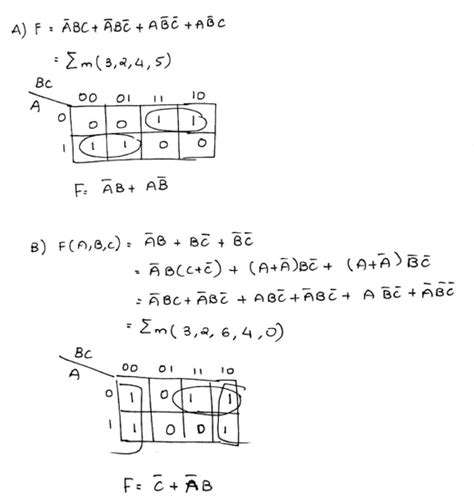 A) F = A̅BC + A̅BC̅ + AB̅C̅ + AB̅C
= Σm(3,2,4,5)
BC
A
00 01 11 10
0 0 0 1 1
1 1 1 0 0
F = A̅B + AB̅
B) F(A,B,C) = A̅B + BC̅ + B̅C̅
= A̅B(C+C̅) + (A+A̅)BC̅ + (A+A̅)B̅C̅
= A̅BC + A̅BC̅ + ABC̅ + A̅BC̅ + AB̅C̅ + A̅B̅C̅
= Σm(3,2,6,4,0)
BC
A
00 01 11 10
0 1 0 1 1
1 1 0 0 1
F = C̅ + A̅B